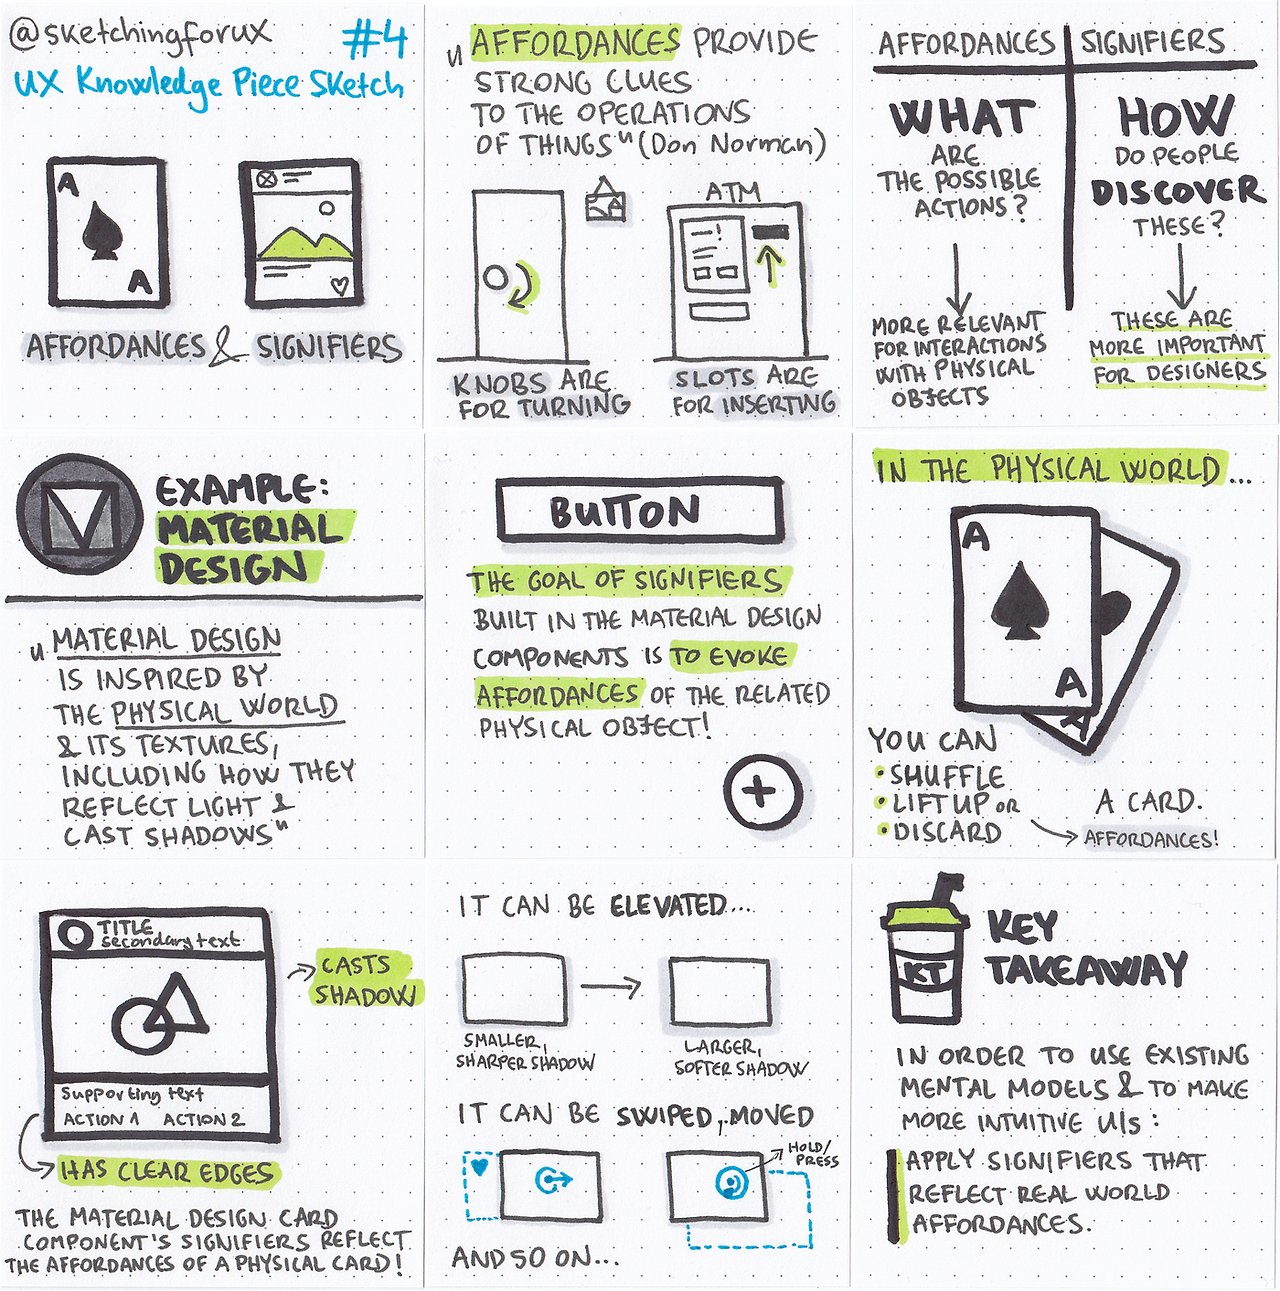 @sketchingforux
#4
UX Knowledge Piece Sketch
A
A
AFFORDANCES & SIGNIFIERS
"AFFORDANCES PROVIDE
STRONG CLUES
TO THE OPERATIONS
OF THINGS" (Don Norman)
ATM
KNOBS ARE
FOR TURNING
SLOTS ARE
FOR INSERTING
AFFORDANCES
WHAT
ARE
THE POSSIBLE
ACTIONS?
MORE RELEVANT
FOR INTERACTIONS
WITH PHYSICAL
OBJECTS
SIGNIFIERS
HOW
DO PEOPLE
DISCOVER
THESE?
THESE ARE
MORE IMPORTANT
FOR DESIGNERS
EXAMPLE:
MATERIAL
DESIGN
"MATERIAL DESIGN
IS INSPIRED BY
THE PHYSICAL WORLD
& ITS TEXTURES,
INCLUDING HOW THEY
REFLECT LIGHT &
CAST SHADOWS"
BUTTON
THE GOAL OF SIGNIFIERS
BUILT IN THE MATERIAL DESIGN
COMPONENTS IS TO EVOKE
AFFORDANCES OF THE RELATED
PHYSICAL OBJECT!
+
IN THE PHYSICAL WORLD...
A
A
A
YOU CAN
• SHUFFLE
• LIFT UP OR
• DISCARD
A CARD.
AFFORDANCES!
TITLE
secondary text
Supporting text
ACTION 1 ACTION 2
CASTS
SHADOW
HAS CLEAR EDGES
THE MATERIAL DESIGN CARD
COMPONENT'S SIGNIFIERS REFLECT
THE AFFORDANCES OF A PHYSICAL CARD!
IT CAN BE ELEVATED...
SMALLER,
SHARPER SHADOW
LARGER,
SOFTER SHADOW
IT CAN BE SWIPED, MOVED
HOLD/
PRESS
AND SO ON...
KT
KEY
TAKEAWAY
IN ORDER TO USE EXISTING
MENTAL MODELS & TO MAKE
MORE INTUITIVE UIs:
APPLY SIGNIFIERS THAT
REFLECT REAL WORLD
AFFORDANCES.